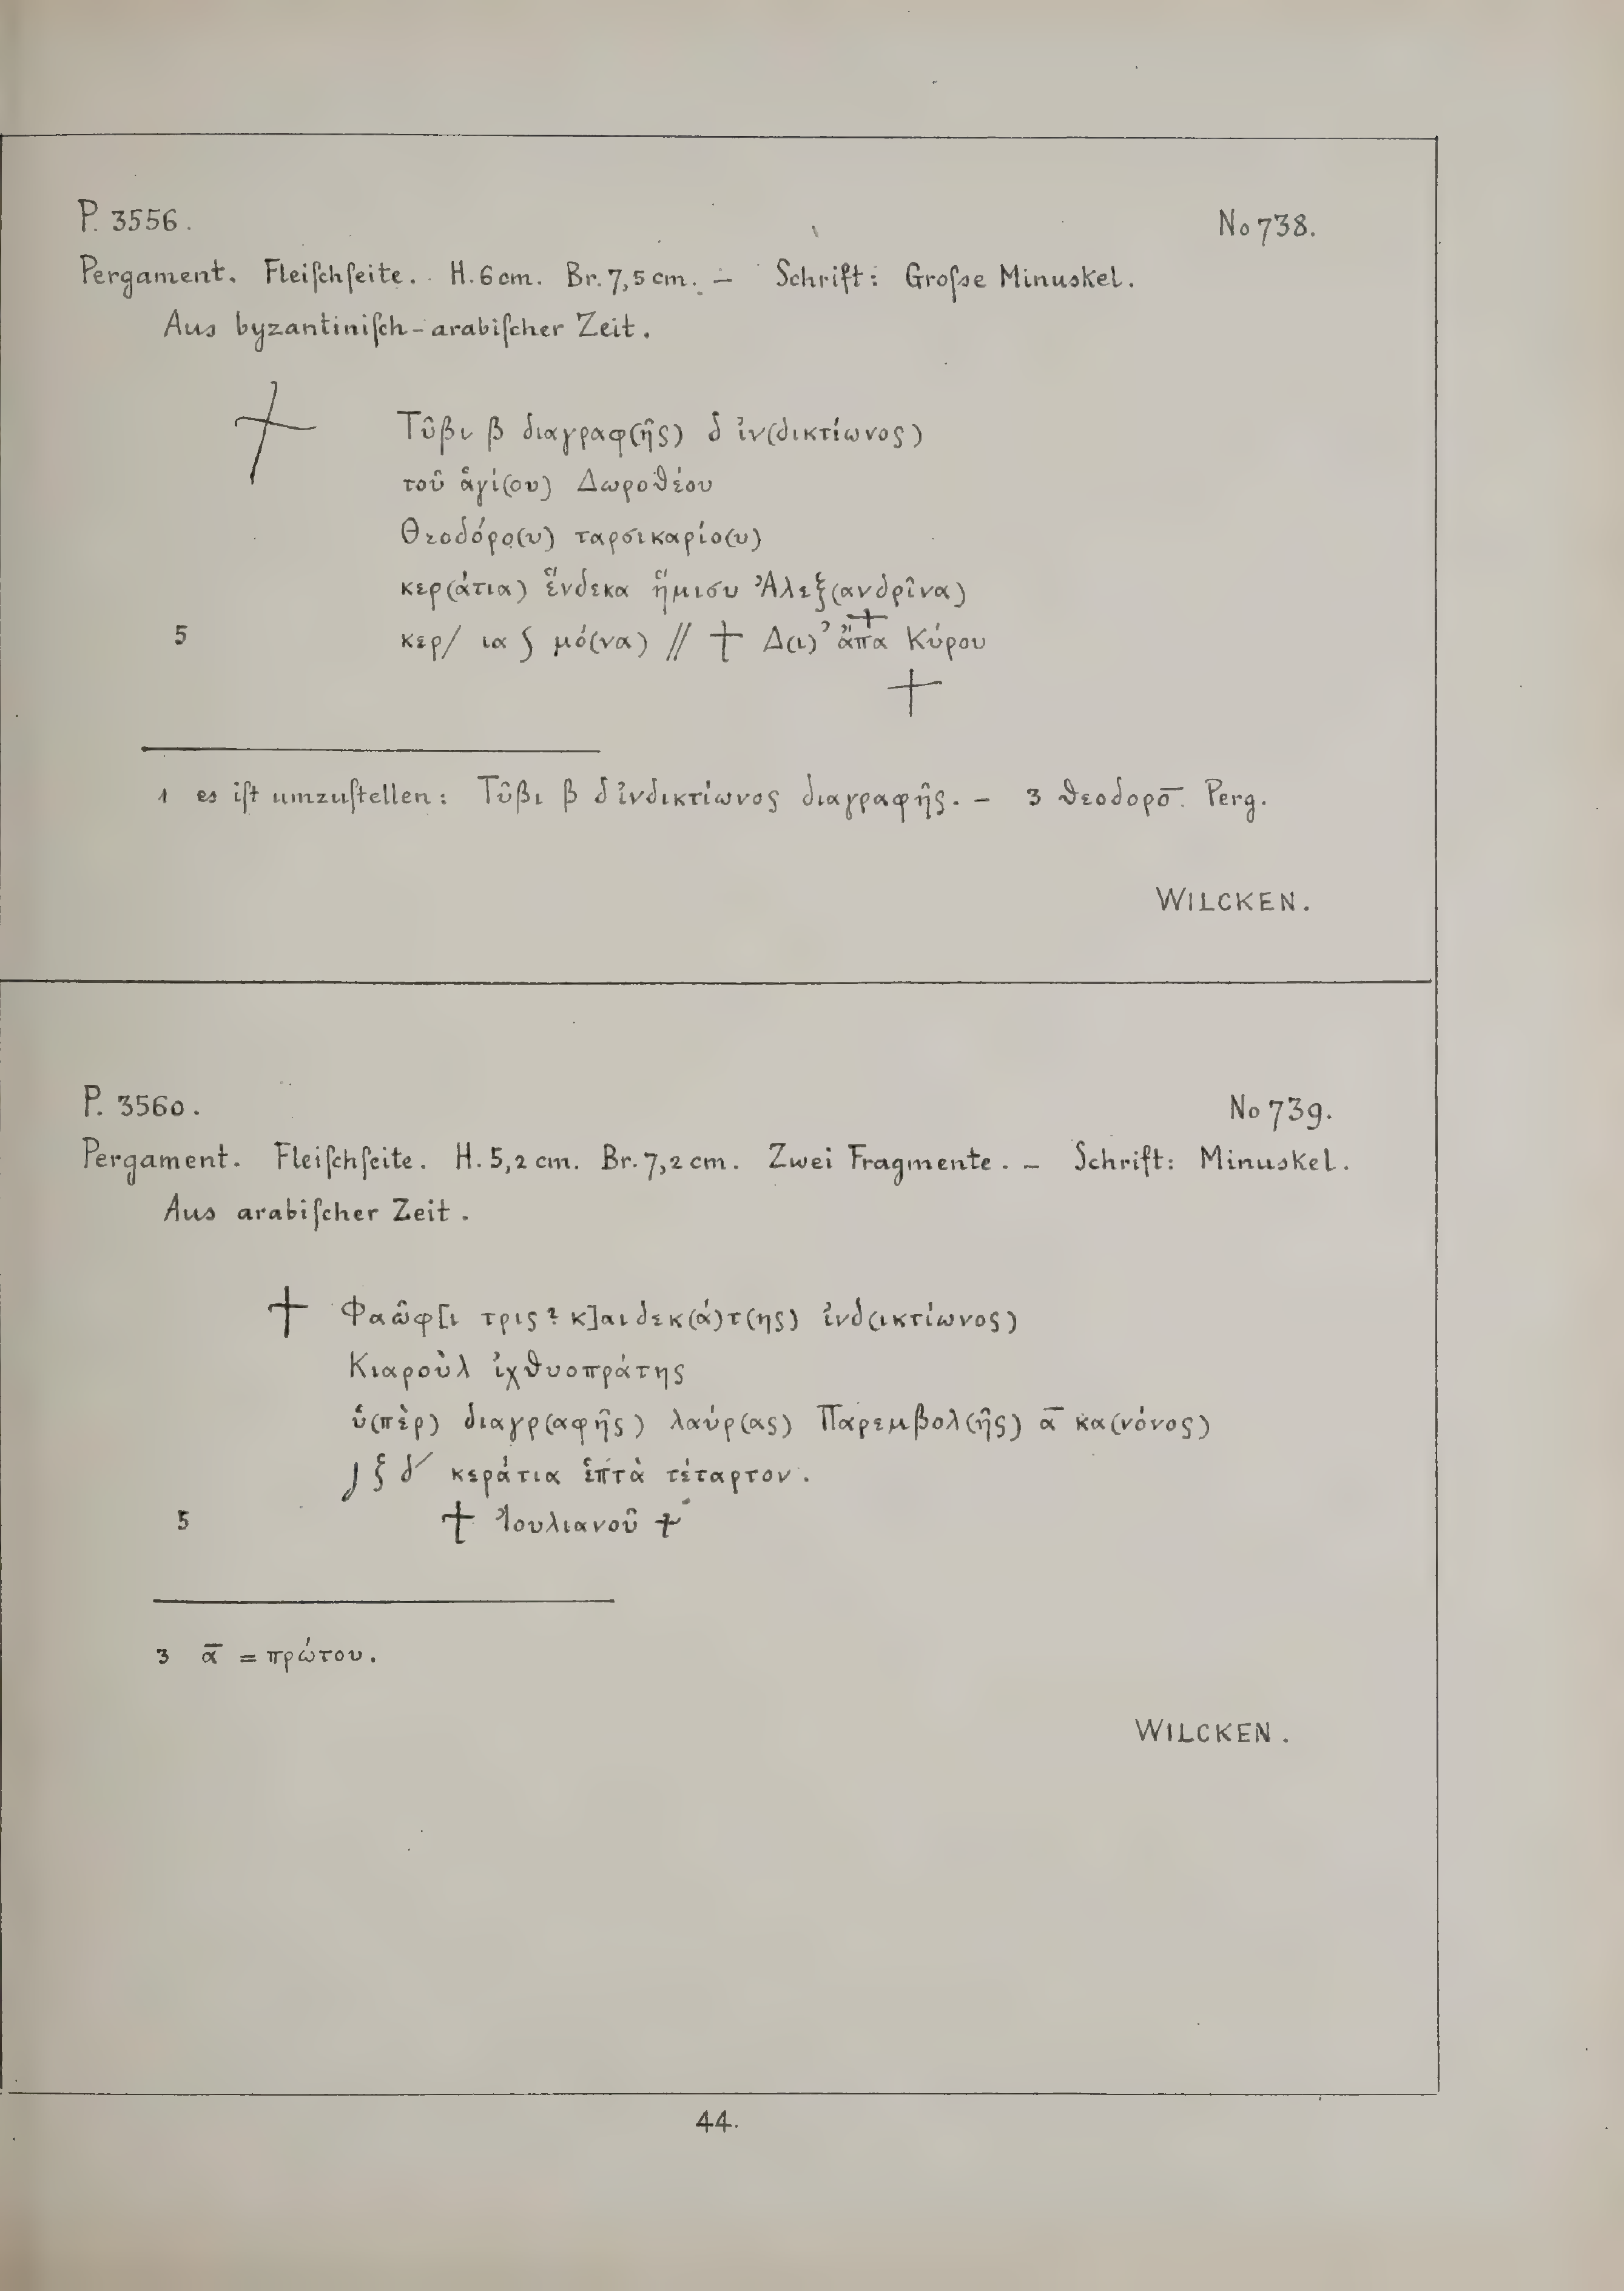 P. 3556.
No 738.
Pergament. Fleiſchſeite. H. 6 cm. Br. 7,5 cm. – Schrift: Groſse Minuskel.
Aus byzantiniſch-arabiſcher Zeit.
Τῦβι β διαγραφ(ῆς) δ ἰν(δικτίωνος)
τοῦ ἁγί(ου) Δωροθέου
Θεοδόρο(υ) ταρσικαρίο(υ)
κερ(άτια) ἕνδεκα ἥμισυ Ἀλεξ(ανδρῖνα)
5 κερ/ ια ϛ μό(να) // † Δ(ι)’ ἄπα Κύρου
†
1 es iſt umzuſtellen: Τῦβι β δ ἰνδικτίωνος διαγραφῆς. – 3 θεοδορο̅. Perg.
WILCKEN.
P. 3560.
No 739.
Pergament. Fleiſchſeite. H. 5,2 cm. Br. 7,2 cm. Zwei Fragmente. – Schrift: Minuskel.
Aus arabiſcher Zeit.
† Φαῶφ[ι τρις? κ]αιδεκ(ά)τ(ης) ἰνδ(ικτίωνος)
Κιαροὺλ ἰχθυοπράτης
ὑ(πὲρ) διαγρ(αφῆς) λαύρ(ας) Παρεμβολ(ῆς) α̅ κα(νόνος)
δ´ κεράτια ἑπτὰ τέταρτον.
5 † Ἰουλιανοῦ †
3 α̅ = πρώτου.
WILCKEN.
44.